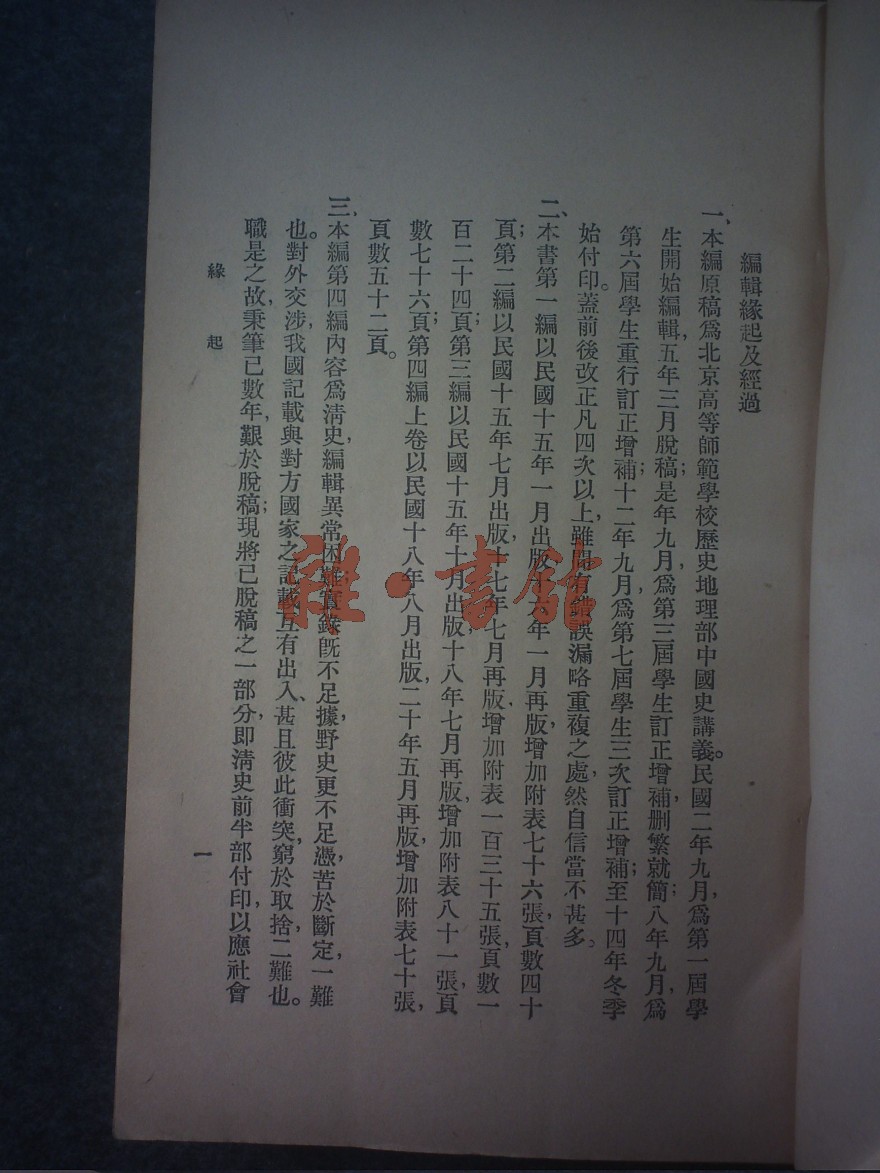 編輯緣起及經過
一、本編原稿爲北京高等師範學校歷史地理部中國史講義。民國二年九月，爲第一屆學
生開始編輯，五年三月脫稿；是年九月，爲第三屆學生訂正增補，删繁就簡；八年九月，爲
第六屆學生重行訂正增補；十二年九月，爲第七屆學生三次訂正增補；至十四年冬季
始付印。蓋前後改正凡四次以上，雖間有錯誤漏略重複之處，然自信當不甚多。
二、本書第一編以民國十五年一月出版，十六年一月再版，增加附表七十六張，頁數四十
頁；第二編以民國十五年七月出版，十七年七月再版，增加附表一百三十五張，頁數一
百二十四頁；第三編以民國十五年十月出版，十八年七月再版，增加附表八十一張，頁
數七十六頁；第四編上卷以民國十八年八月出版，二十年五月再版，增加附表七十張，
頁數五十二頁。
三、本編第四編內容爲淸史，編輯異常困難；實錄旣不足據，野史更不足憑，苦於斷定，一難
也。對外交涉，我國記載與對方國家之記載互有出入，甚且彼此衝突，窮於取捨，二難也。
職是之故，秉筆已數年，艱於脫稿；現將已脫稿之一部分，卽淸史前半部付印，以應社會
緣起
一
雜·書館